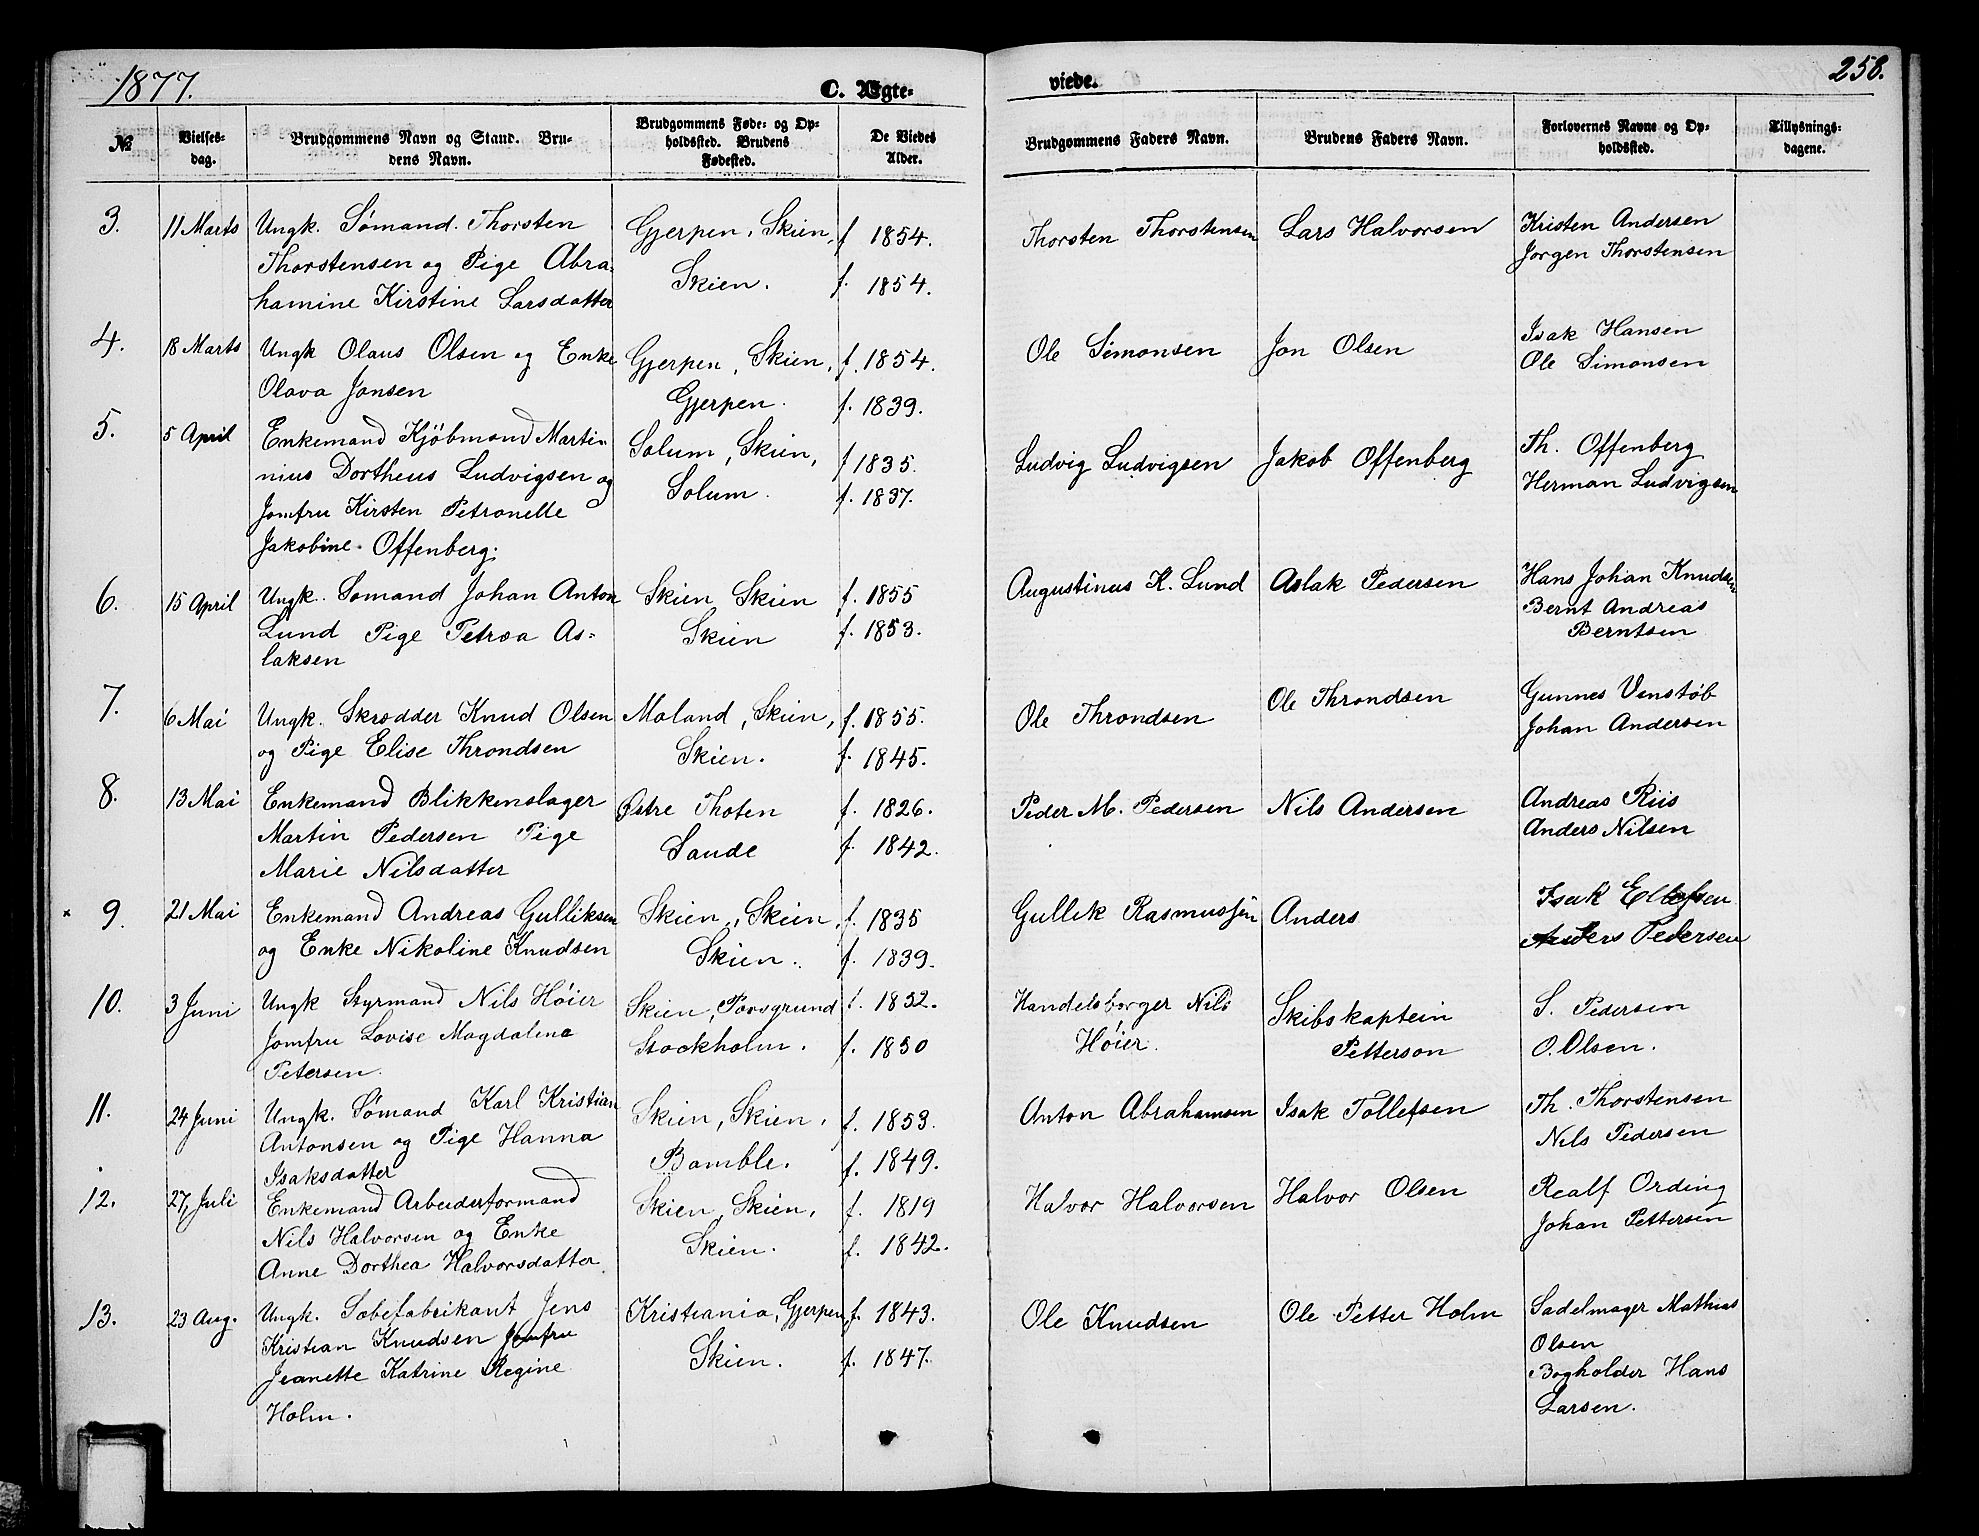 1877.
C. Ægte-
viede.
258.
№
Vielses-
dag.
Brudgommens Navn og Stand. Bru-
dens Navn.
Brudgommens Føde- og Op-
holdssted. Brudens
Fødested.
De Viedes
Alder.
Brudgommens Faders Navn.
Brudens Faders Navn.
Forlovernes Navne og Op-
holdssted.
Tillysnings-
dagene.
3.
11 Marts
Ungk. Sømand. Thorsten
Thorstensen og Pige Abra-
hamine Kirstine Larsdatter
Gjerpen, Skien,
Skien.
f. 1854.
f. 1854.
Thorsten Thorstensen
Lars Halvorsen
Kristen Andersen
Jørgen Thorstensen
4.
18 Marts
Ungk Olaus Olsen og Enke
Olava Jansen
Gjerpen, Skien,
Gjerpen.
f. 1854.
f. 1839.
Ole Simonsen
Jon Olsen
Isak Hansen
Ole Simonsen
5.
5 April
Enkemand Kjøbmand Marti-
nius Dortheus Ludvigsen og
Jomfru Kirsten Petronelle
Jakobine Offenberg.
Solum, Skien,
Solum.
f 1835.
f. 1837.
Ludvig Ludvigsen
Jakob Offenberg
Th. Offenberg
Herman Ludvigsen
6.
15 April
Ungk. Sømand Johan Anton
Lund Pige Petrea As-
laksen
Skien Skien
Skien
f. 1855
f. 1853.
Augustinus K. Lund
Aslak Pedersen
Hans Johan Knudsen
Bernt Andreas
Berntsen
7.
6 Mai
Ungk. Skrædder Knud Olsen
og Pige Elise Throndsen
Moland, Skien,
Skien.
f. 1855.
f. 1845.
Ole Throndsen
Ole Throndsen
Gunnes Venstøb
Johan Andersen
8.
13 Mai
Enkemand Blikkenslager
Martin Pedersen Pige
Marie Nilsdatter
Østre Thoten
Sande
f. 1826.
f. 1842.
Peder M. Pedersen
Nils Andersen
Andreas Riis
Anders Nilsen
× 9.
21 Mai
Enkemand Andreas Gulliksen
og Enke Nikoline Knudsen
Skien, Skien,
Skien.
f. 1835
f. 1839.
Gullik Rasmussen
Anders
Isak Ellefsen
Anders Pedersen
10.
3 Juni
Ungk Styrmand Nils Høier
Jomfru Lovise Magdalena
Petersen.
Skien, Porsgrund
Stockholm.
f. 1852.
f. 1850
Handelsborger Nils
Høier.
Skibskaptein
Petterson
S. Pedersen
O. Olsen.
11.
24 Juni
Ungk. Sømand Karl Kristian
Antonsen og Pige Hanna
Isaksdatter
Skien, Skien,
Bamble.
f. 1853.
f. 1849.
Anton Abrahamsen
Isak Tollefsen
Th. Thorstensen
Nils Pedersen
12.
27 Juli
Enkemand Arbeiderformand
Nils Halvorsen og Enke
Anne Dorthea Halvorsdatter
Skien, Skien,
Skien.
f. 1819
f. 1842.
Halvor Halvorsen
Halvor Olsen
Realf Ording
Johan Pettersen
13.
23 Aug.
Ungk. Sæbefabrikant Jens
Kristian Knudsen Jomfru
Jeanette Katrine Regine
Holm.
Kristiania, Gjerpen,
Skien.
f. 1843.
f. 1847.
Ole Knudsen
Ole Petter Holm
Sadelmager Mathias
Olsen
Bogholder Hans
Larsen.